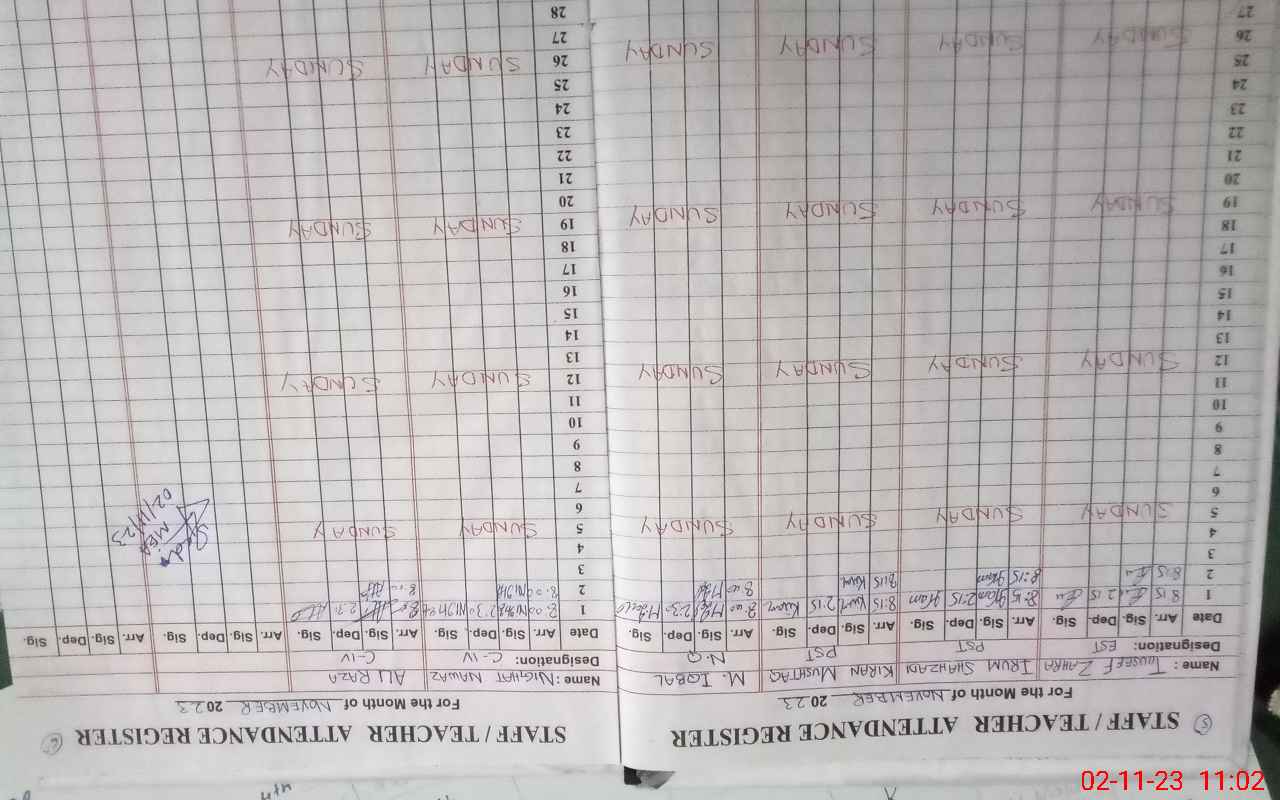 5 STAFF / TEACHER ATTENDANCE REGISTER
For the Month of NOVEMBER 2023
Name : TOUSEEF ZAHRA IRUM SHAHZADI KIRAN MUSHTAQ M. IQBAL
Designation: EST PST PST N.Q
Date Arr. Sig. Dep. Sig. Arr. Sig. Dep. Sig. Arr. Sig. Dep. Sig. Arr. Sig. Dep. Sig.
1 8:15 2:15 8:15 2:15 8:15 2:15 8:00 2:30
2 8:15 8:15 8:15 8:00
3
4
5 SUNDAY SUNDAY SUNDAY SUNDAY
6
7
8
9
10
11
12 SUNDAY SUNDAY SUNDAY SUNDAY
13
14
15
16
17
18
19 SUNDAY SUNDAY SUNDAY SUNDAY
20
21
22
23
24
25
26 SUNDAY SUNDAY SUNDAY SUNDAY
27
STAFF / TEACHER ATTENDANCE REGISTER 6
For the Month of NOVEMBER 2023
Name : NIGHAT NAWAZ ALI RAZA
Designation: C-IV C-IV
Date Arr. Sig. Dep. Sig. Arr. Sig. Dep. Sig. Arr. Sig. Dep. Sig. Arr. Sig. Dep. Sig.
1 8:00 2:30
2 8:00 8:00
3
4
5 SUNDAY SUNDAY
MEA
02/11/23
6
7
8
9
10
11
12 SUNDAY SUNDAY
13
14
15
16
17
18
19 SUNDAY SUNDAY
20
21
22
23
24
25
26 SUNDAY SUNDAY
27
28
02-11-23 11:02